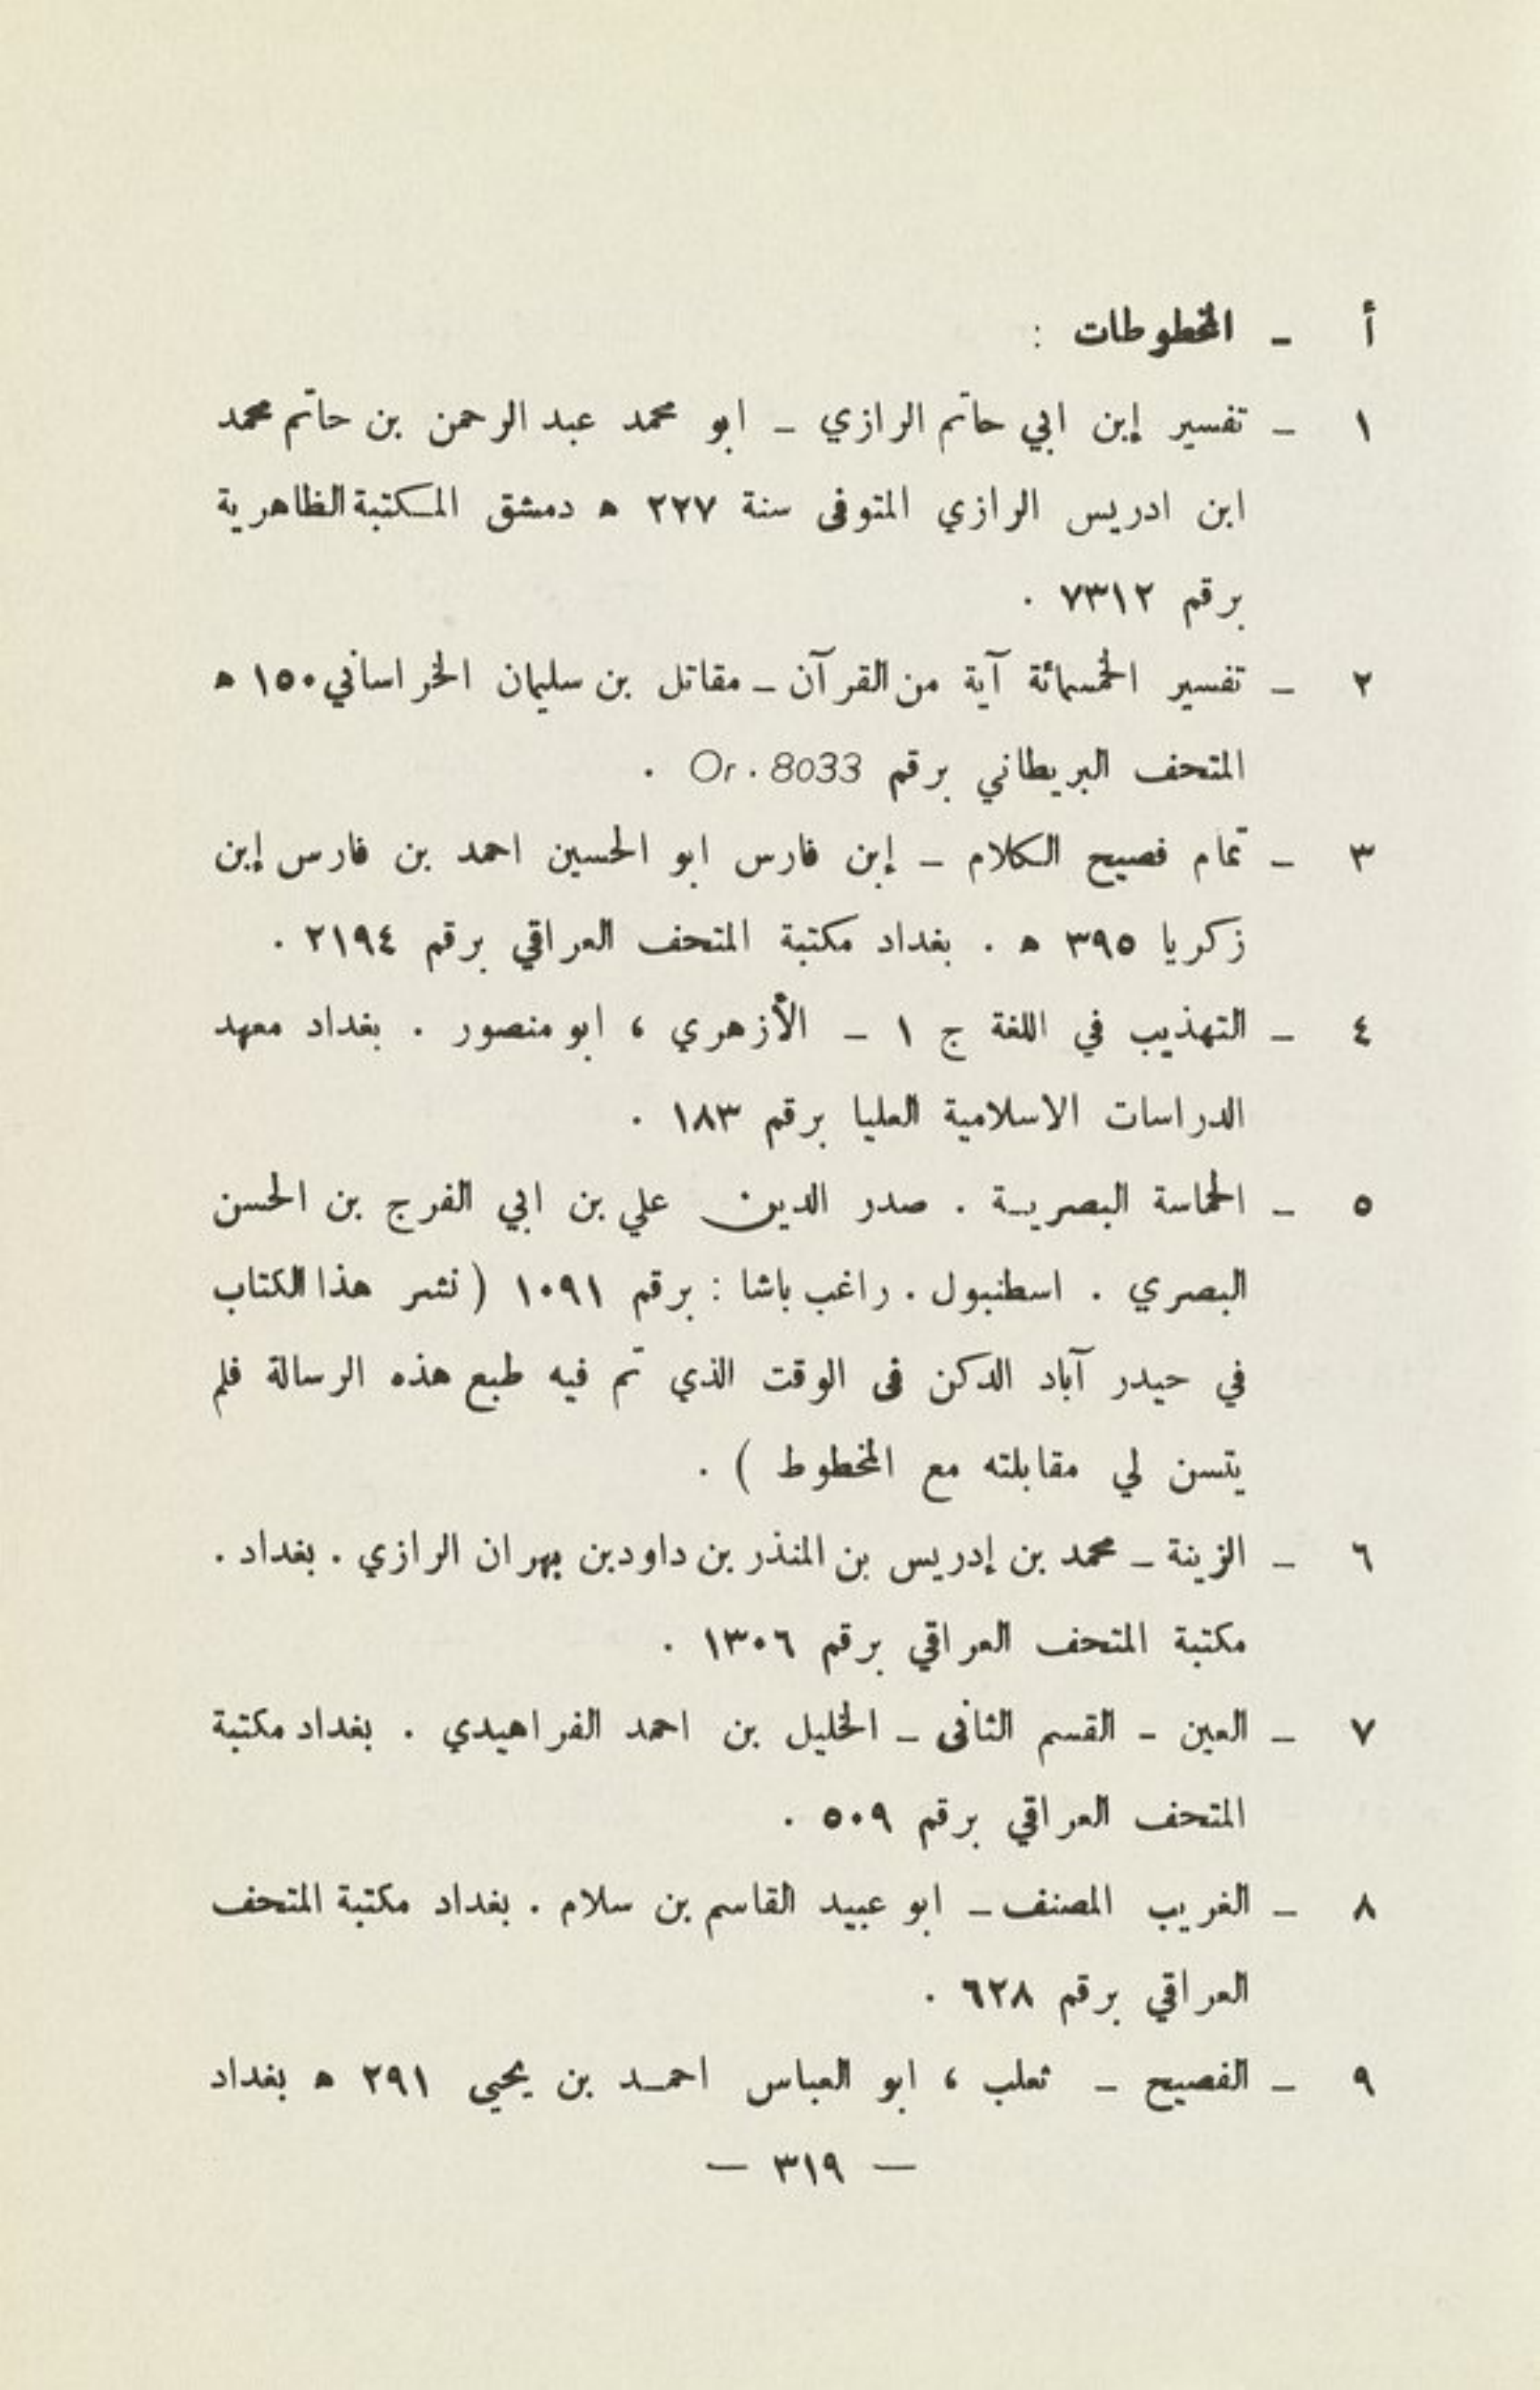 أ - المخطوطات :
١ - تفسير إبن ابي حاتم الرازي - ابو محمد عبد الرحمن بن حاتم محمد
ابن ادريس الرازي المتوفى سنة ٢٢٧ ه دمشق المكتبة الظاهرية
برقم ٧٣١٢ .
٢ - تفسير الخمسمائة آية من القرآن - مقاتل بن سليمان الخراساني ١٥٠ ه
المتحف البريطاني برقم Or . 8033 .
٣ - تمام فصيح الكلام - إبن فارس ابو الحسين احمد بن فارس إبن
زكريا ٣٩٥ ه . بغداد مكتبة المتحف العراقي برقم ٢١٩٤ .
٤ - التهذيب في اللغة ج ١ - الأزهري ، ابو منصور . بغداد معهد
الدراسات الاسلامية العليا برقم ١٨٣ .
٥ - الحماسة البصرية . صدر الدين علي بن ابي الفرج بن الحسن
البصري . اسطنبول . راغب باشا : برقم ١٠٩١ ( نشر هذا الكتاب
في حيدر آباد الدكن فى الوقت الذي تم فيه طبع هذه الرسالة فلم
يتسن لي مقابلته مع المخطوط ) .
٦ - الزينة - محمد بن إدريس بن المنذر بن داود بن مهران الرازي . بغداد .
مكتبة المتحف العراقي برقم ١٣٠٦ .
٧ - العين - القسم الثانى - الخليل بن احمد الفراهيدي . بغداد مكتبة
المتحف العراقي برقم ٥٠٩ .
٨ - الغريب المصنف - ابو عبيد القاسم بن سلام . بغداد مكتبة المتحف
العراقي برقم ٦٢٨ .
٩ - الفصيح - ثعلب ، ابو العباس احمد بن يحيي ٢٩١ ه بغداد
— ٣١٩ —